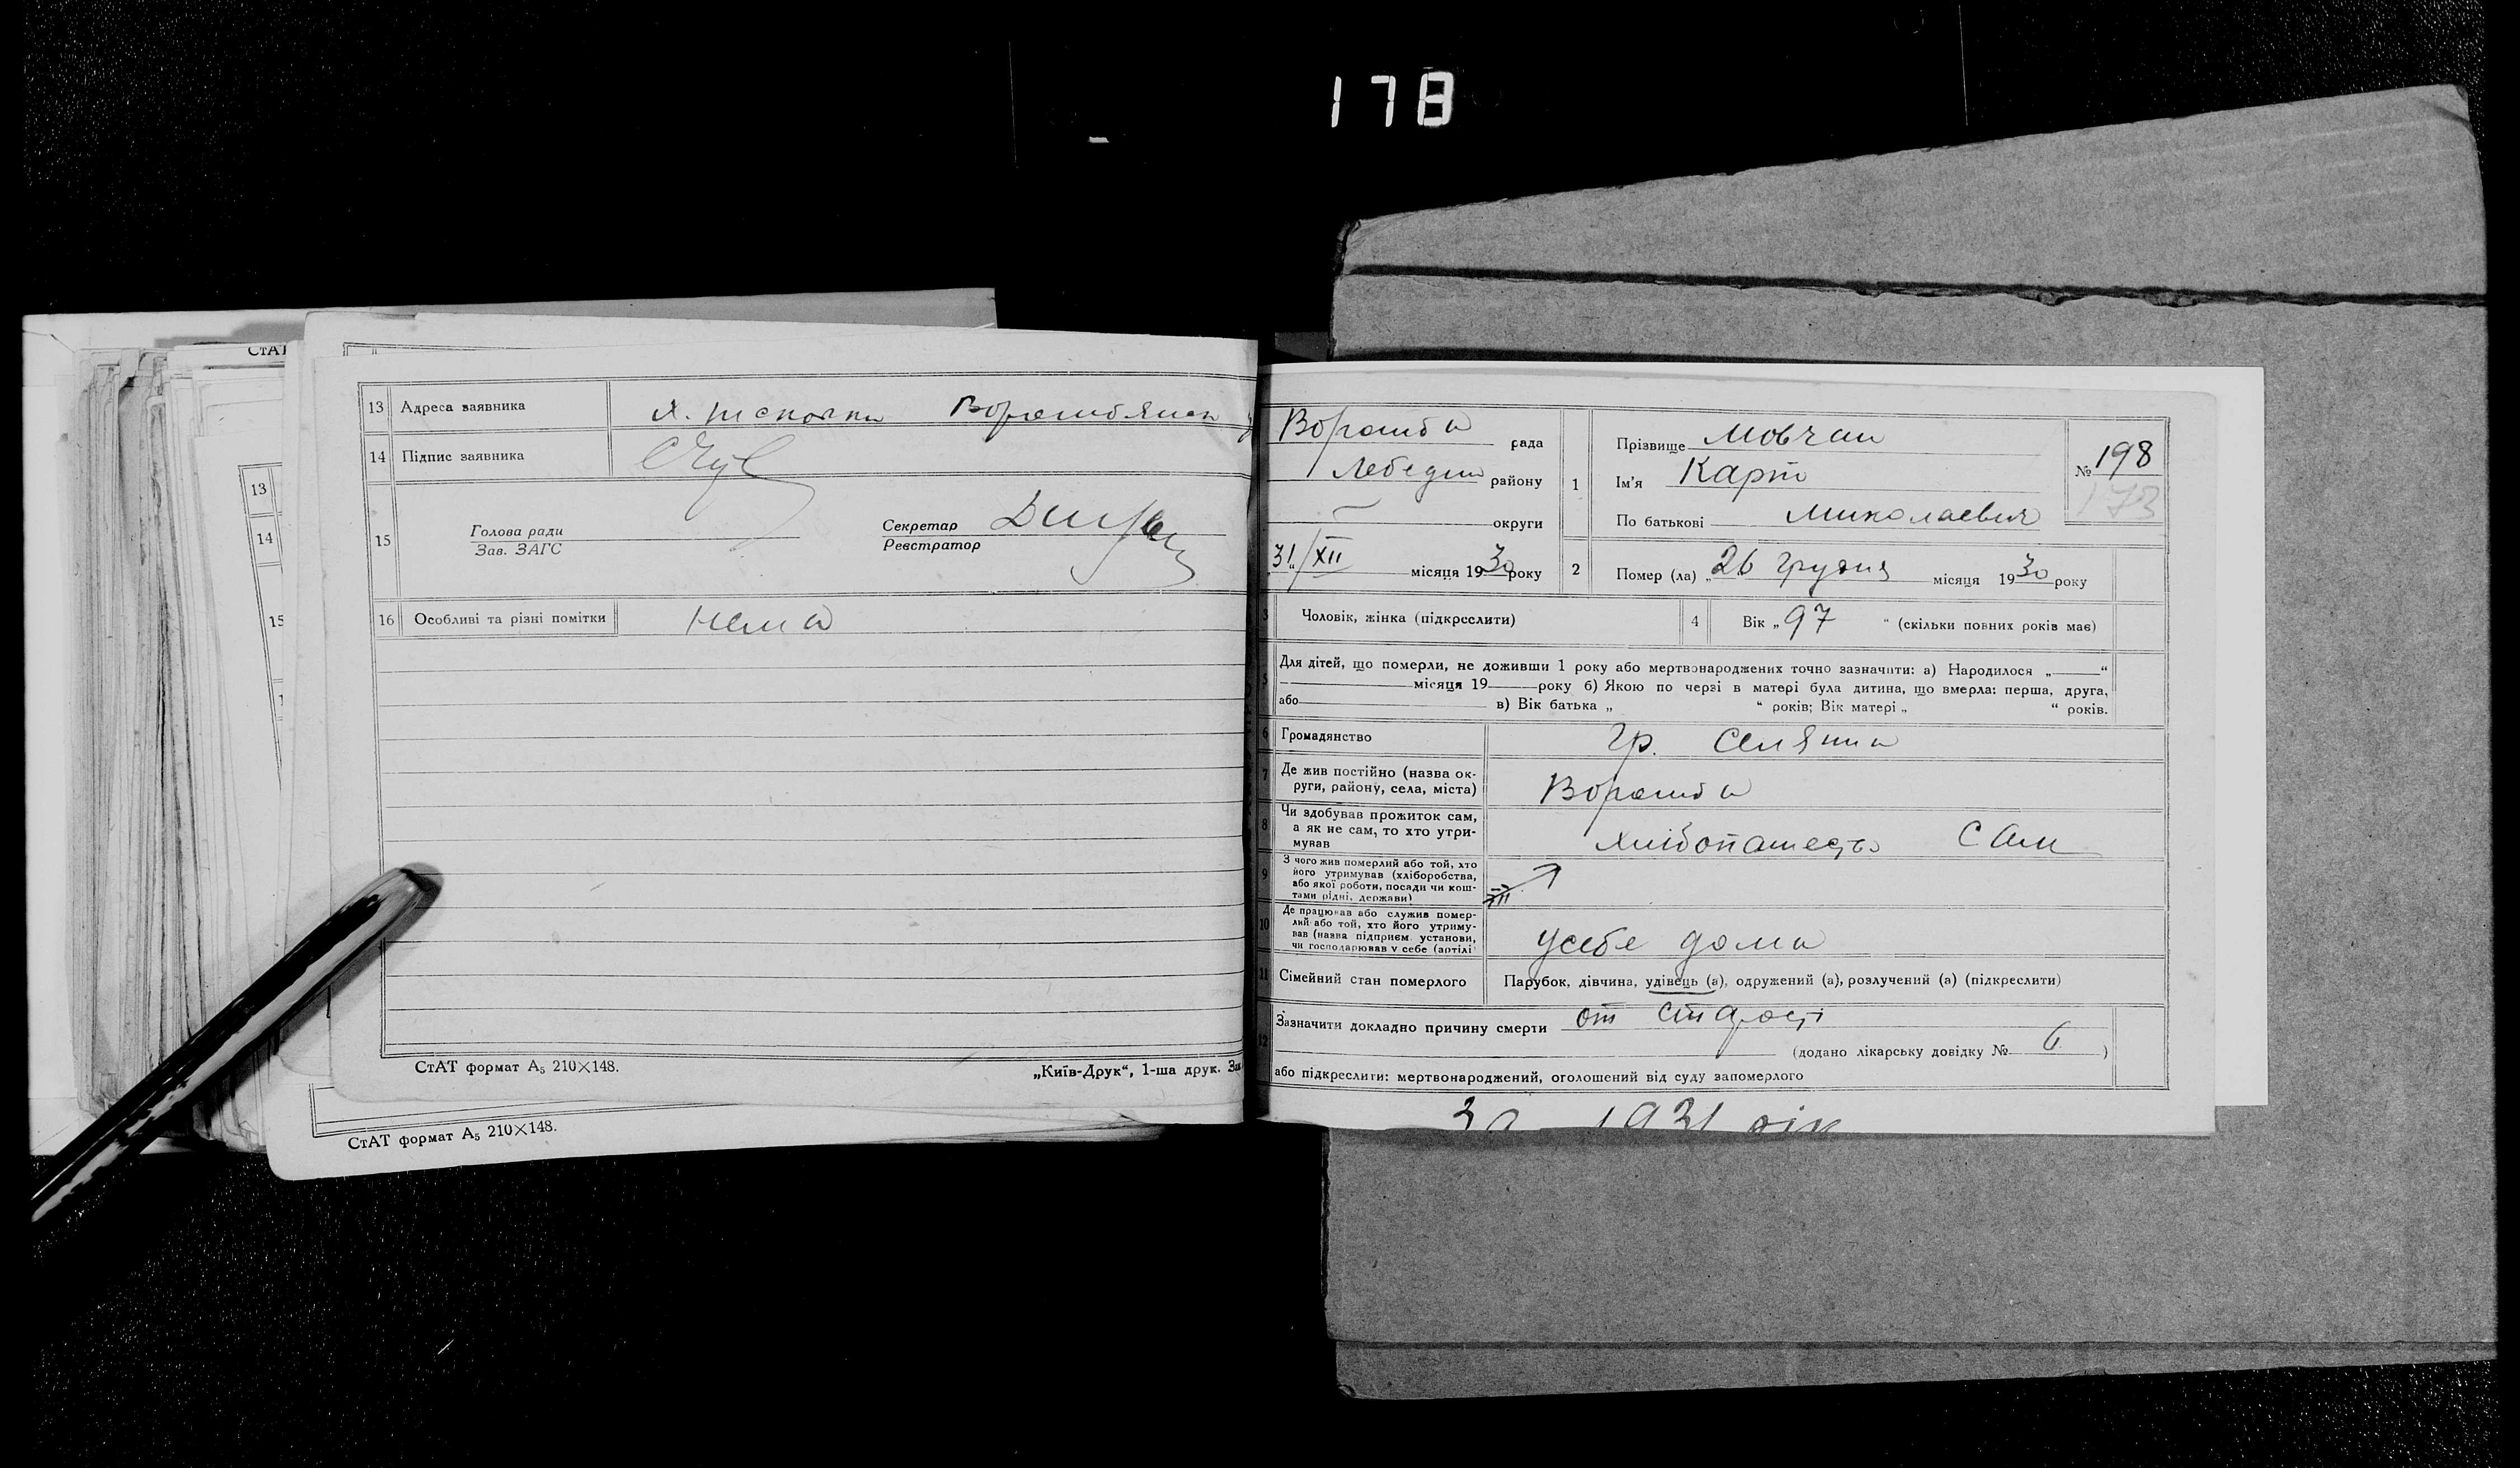 178
СтАТ
13 Адреса заявника х.
14 Підпис заявника
15 Голова ради
Зав. ЗАГС
Секретар
Реєстратор
16 Особливі та різні помітки нема
СтАТ формат А₅ 210×148.
„Київ-Друк“, 1-ша друк. Зак
13
14
15
СтАТ формат А₅ 210×148.
Ворожба рада
Лебедин району
— округи
„31“/XII місяця 1930 року
1 Прізвище Мовчан
Ім'я Карпо
По батькові Миколаевич
№ 198
173
2 Помер (ла) „26 Грудня місяця 1930 року
3 Чоловік, жінка (підкреслити)
4 Вік „97“ (скільки повних років має)
5 Для дітей, що померли, не доживши 1 року або мертвонароджених точно зазначити: а) Народилося „ “
місяця 19 року б) Якою по черзі в матері була дитина, що вмерла: перша, друга,
або в) Вік батька „ “ років; Вік матері „ “ років.
6 Громадянство гр. Селянин
7 Де жив постійно (назва ок-
руги, району, села, міста) Ворожба
8 Чи здобував прожиток сам,
а як не сам, то хто утри-
мував сам
9 З чого жив померлий або той, хто
його утримував (хліборобства,
або якої роботи, посади чи кош-
тами рідні, держави)
10 Де працював або служив помер-
лий або той, хто його утриму-
вав (назва підприєм. установи,
чи господарював у себе (артілі
усебе дома
11 Сімейний стан померлого Парубок, дівчина, удівець (а), одружений (а), розлучений (а) (підкреслити)
12 Зазначити докладно причину смерти от старості
(додано лікарську довідку № 6 )
або підкреслити: мертвонароджений, оголошений від суду запомерлого
За 1931 рік